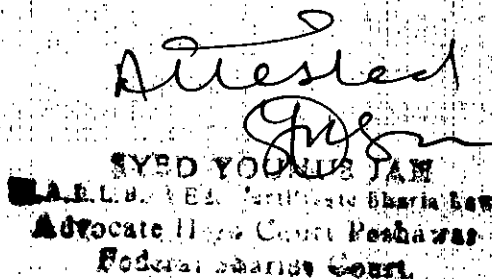 Attested
SYED YOUNUS JAN
B.A.L.L.B. B.Ed. Certificate Sharia Law
Advocate High Court Peshawar
Federal Shariat Court